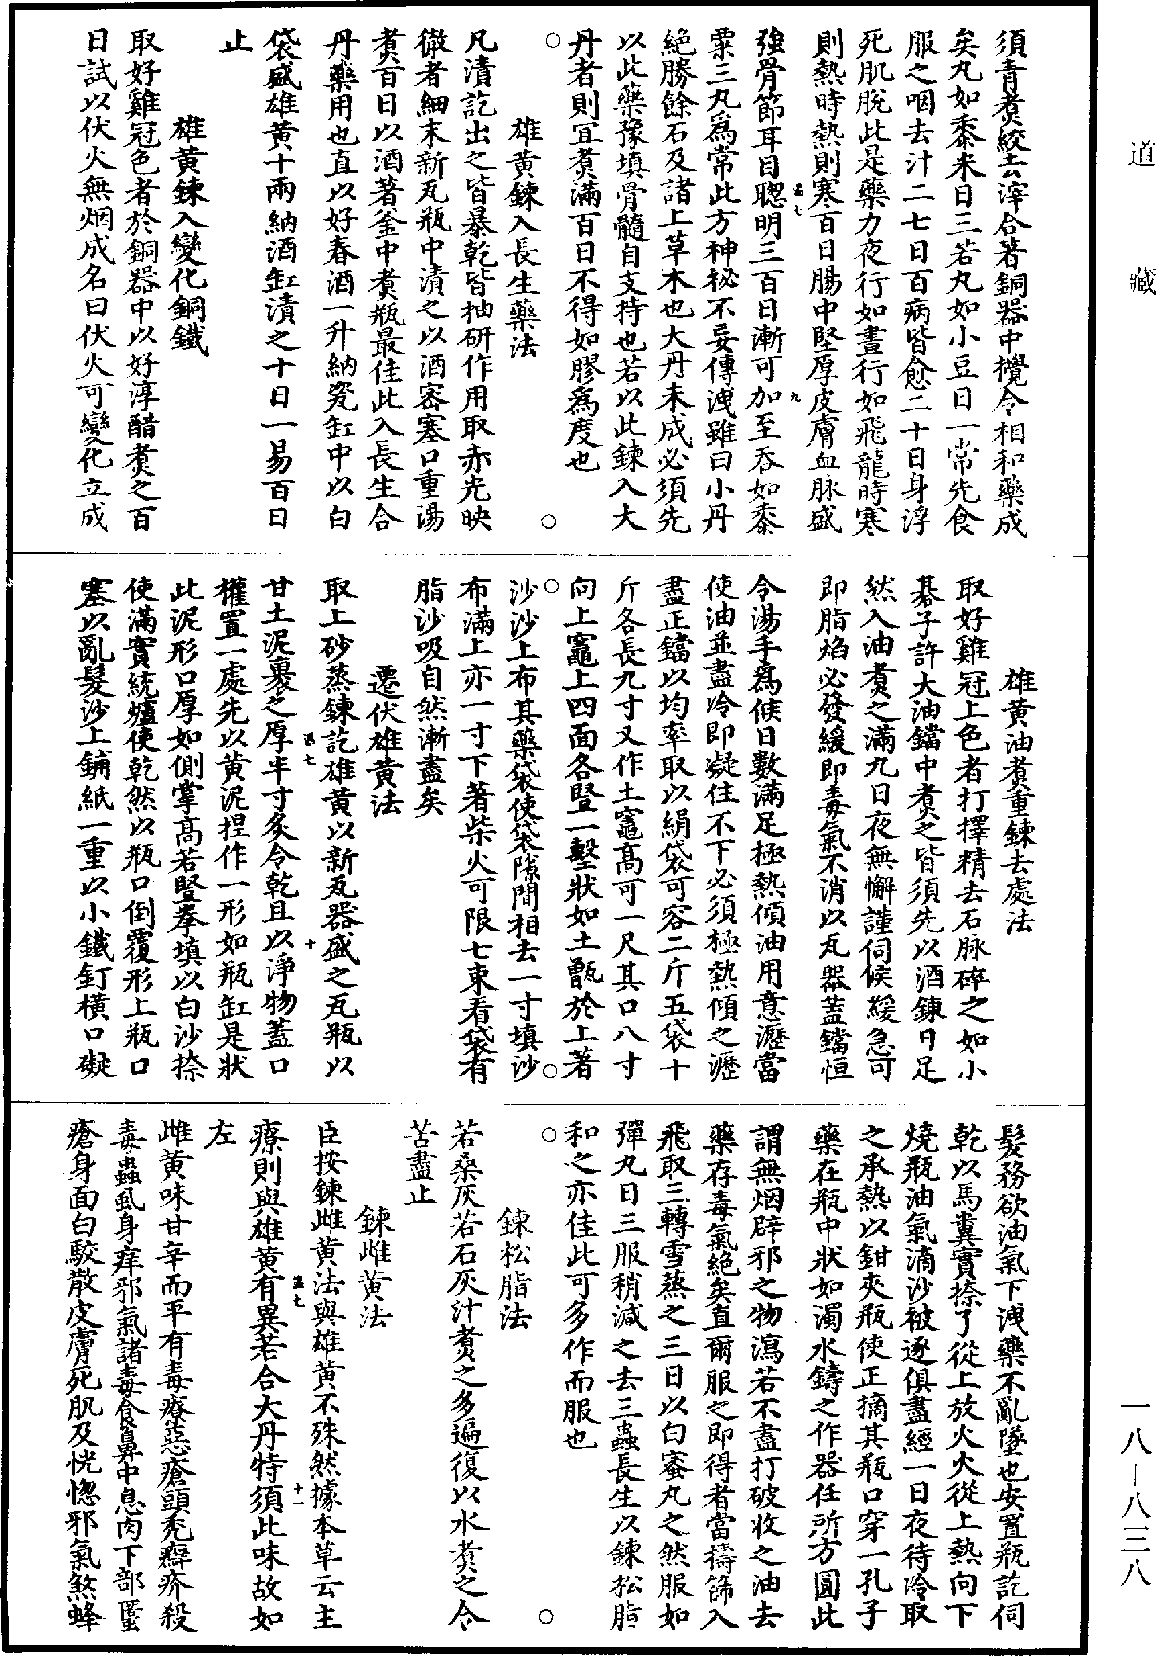 道藏
須青煑絞去滓合著銅器中攪令相和藥成
矣丸如黍米日三若丸如小豆日一常先食
服之咽去汁二七日百病皆愈二十日身浮
死肌脫此是藥力夜行如晝行如飛龍時寒
則熱時熱則寒百日腸中堅厚皮膚血脉盛
強骨節耳目聰明三百日漸可加至吞如黍
五七
九
粟三丸爲常此方神祕不妄傳洩雖曰小丹
絶勝餘石及諸上草木也大丹未成必須先
以此藥豫填骨髓自支持也若以此鍊入大
丹者則宜煑滿百日不得如膠爲度也
雄黄鍊入長生藥法
凡漬訖出之皆暴乾皆抽研作用取赤光映
徹者細末新瓦瓶中漬之以酒密塞口重湯
煑百日以酒著釜中煑瓶最佳此入長生合
丹藥用也直以好春酒一升納瓷缸中以白
袋盛雄黄十兩納酒缸漬之十日一易百日
止
雄黄鍊入變化銅鐵
取好雞冠色者於銅器中以好淳醋煑之百
日試以伏火無烟成名曰伏火可變化立成
雄黄油煑重鍊去處法
取好雞冠上色者打擇精去石脉碎之如小
碁子許大油鐺中煑之皆須先以酒鍊日足
然入油煑之滿九日夜無懈謹伺候緩急可
即脂焰必發緩即毒氣不消以瓦器蓋鐺恒
令湯手爲候日數滿足極熱傾油用意瀝當
使油並盡冷即凝住不下必須極熱傾之瀝
盡正鐺以均率取以絹袋可容二斤五袋十
斤各長九寸又作土竈高可一尺其口八寸
向上竈上四面各竪一墼狀如土甑於上著
沙沙上布其藥袋使袋隙間相去一寸填沙
布滿上亦一寸下著柴火可限七束看袋有
脂沙吸自然漸盡矣
遷伏雄黄法
取上砂蒸鍊訖雄黄以新瓦器盛之瓦瓶以
五七
十
甘土泥裹之厚半寸炙令乾且以淨物蓋口
權置一處先以黄泥捏作一形如瓶缸是狀
此泥形口厚如側掌高若竪拳填以白沙捺
使滿實統爐使乾然以瓶口倒覆形上瓶口
塞以亂髮沙上鋪紙一重以小鐵釘横口礙
髮務欲油氣下洩藥不亂墜也安置瓶訖伺
乾以馬糞實捺了從上放火火從上熱向下
燒瓶油氣滴沙被逐俱盡經一日夜待冷取
之承熱以鉗夾瓶使正摘其瓶口穿一孔子
藥在瓶中狀如濁水鑄之作器任所方圓此
謂無烟辟邪之物瀉若不盡打破收之油去
藥存毒氣絶矣直爾服之即得者當擣篩入
飛取三轉雪蒸之三日以白蜜丸之然服如
彈丸日三服稍減之去三蟲長生以鍊松脂
和之亦佳此可多作而服也
鍊松脂法
若桑灰若石灰汁煑之多遍復以水煑之令
苦盡止
鍊雌黄法
臣按鍊雌黄法與雄黄不殊然據本草云主
五七
十一
療則與雄黄有異若合大丹特須此味故如
左
雌黄味甘辛而平有毒療惡瘡頭禿癬疥殺
毒蟲虱身痒邪氣諸毒食鼻中息肉下部䘌
瘡身面白駮散皮膚死肌及恍惚邪氣煞蜂
一八—八三八